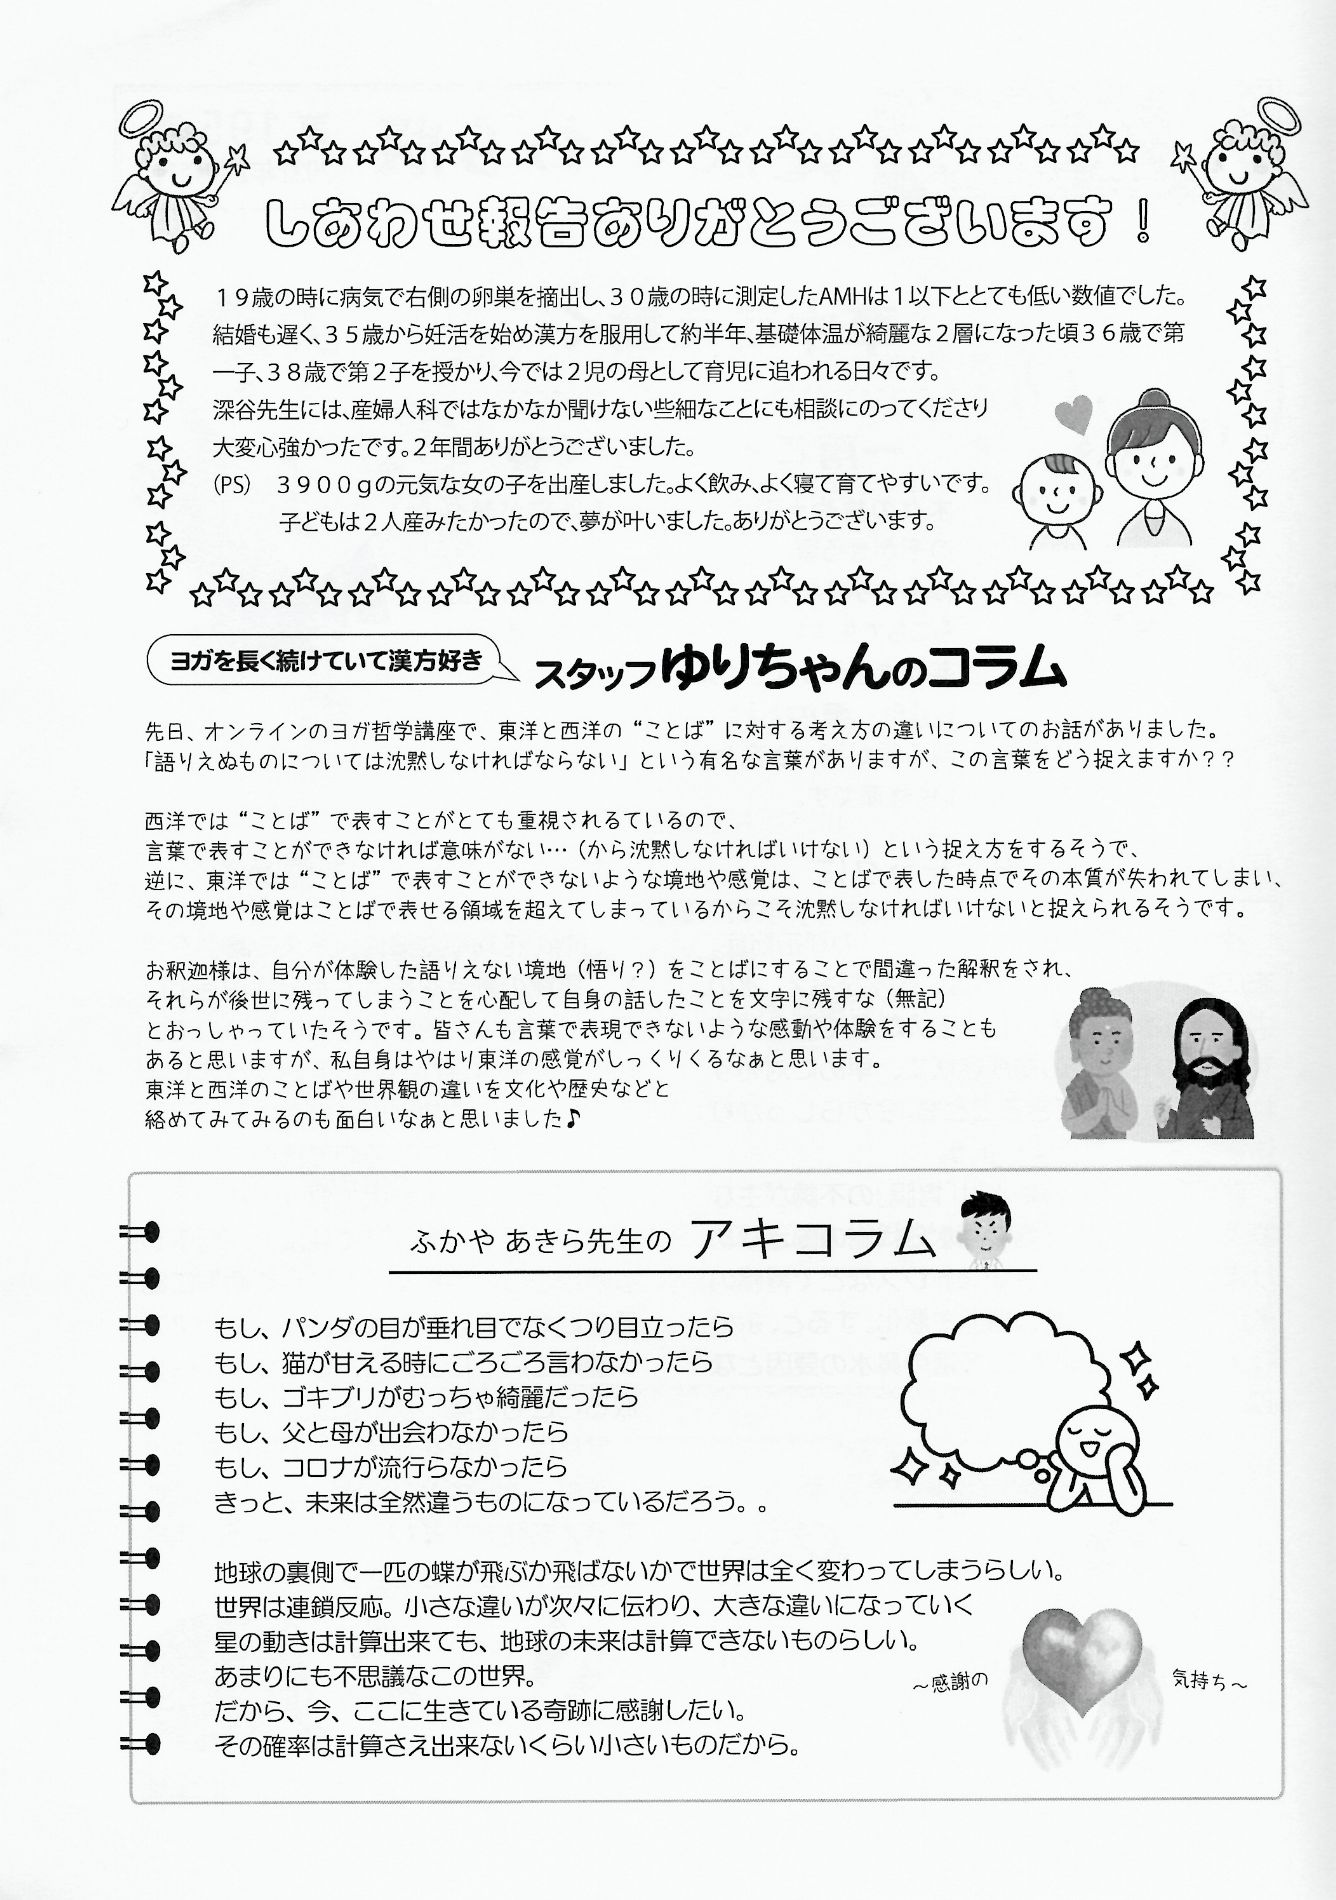 しあわせ報告ありがとうございます！
１９歳の時に病気で右側の卵巣を摘出し、３０歳の時に測定したAMHは１以下ととても低い数値でした。
結婚も遅く、３５歳から妊活を始め漢方を服用して約半年、基礎体温が綺麗な２層になった頃３６歳で第
一子、３８歳で第２子を授かり、今では２児の母として育児に追われる日々です。
深谷先生には、産婦人科ではなかなか聞けない些細なことにも相談にのってくださり
大変心強かったです。２年間ありがとうございました。
(PS)　３９００ｇの元気な女の子を出産しました。よく飲み、よく寝て育てやすいです。
子どもは２人産みたかったので、夢が叶いました。ありがとうございます。
ヨガを長く続けていて漢方好き
スタッフゆりちゃんのコラム
先日、オンラインのヨガ哲学講座で、東洋と西洋の“ことば”に対する考え方の違いについてのお話がありました。
「語りえぬものについては沈黙しなければならない」という有名な言葉がありますが、この言葉をどう捉えますか？？
西洋では“ことば”で表すことがとても重視されるているので、
言葉で表すことができなければ意味がない…（から沈黙しなければいけない）という捉え方をするそうで、
逆に、東洋では“ことば”で表すことができないような境地や感覚は、ことばで表した時点でその本質が失われてしまい、
その境地や感覚はことばで表せる領域を超えてしまっているからこそ沈黙しなければいけないと捉えられるそうです。
お釈迦様は、自分が体験した語りえない境地（悟り？）をことばにすることで間違った解釈をされ、
それらが後世に残ってしまうことを心配して自身の話したことを文字に残すな（無記）
とおっしゃっていたそうです。皆さんも言葉で表現できないような感動や体験をすることも
あると思いますが、私自身はやはり東洋の感覚がしっくりくるなぁと思います。
東洋と西洋のことばや世界観の違いを文化や歴史などと
絡めてみてみるのも面白いなぁと思いました♪
ふかや あきら先生の アキコラム
もし、パンダの目が垂れ目でなくつり目立ったら
もし、猫が甘える時にごろごろ言わなかったら
もし、ゴキブリがむっちゃ綺麗だったら
もし、父と母が出会わなかったら
もし、コロナが流行らなかったら
きっと、未来は全然違うものになっているだろう。。
地球の裏側で一匹の蝶が飛ぶか飛ばないかで世界は全く変わってしまうらしい。
世界は連鎖反応。小さな違いが次々に伝わり、大きな違いになっていく
星の動きは計算出来ても、地球の未来は計算できないものらしい。
あまりにも不思議なこの世界。
だから、今、ここに生きている奇跡に感謝したい。
その確率は計算さえ出来ないくらい小さいものだから。
～感謝の 気持ち～